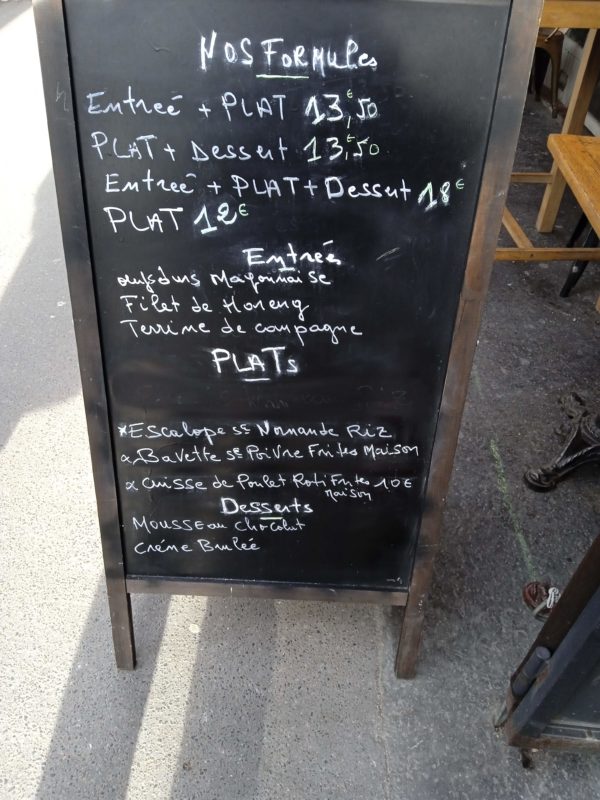 NOS FORMULES
Entreé + PLAT 13€,50
PLAT + Dessert 13€,50
Entreé + PLAT + Dessert 18€
PLAT 12€
Entrées
oeufs durs Mayonnaise
Filet de Hareng
Terrine de campagne
PLATS
*Escalope sce Normande Riz
*Bavette sce Poivre Frites Maison
*Cuisse de Poulet Roti Frites 10€
Maison
Desserts
Mousse au Chocolat
Créme Bruleé